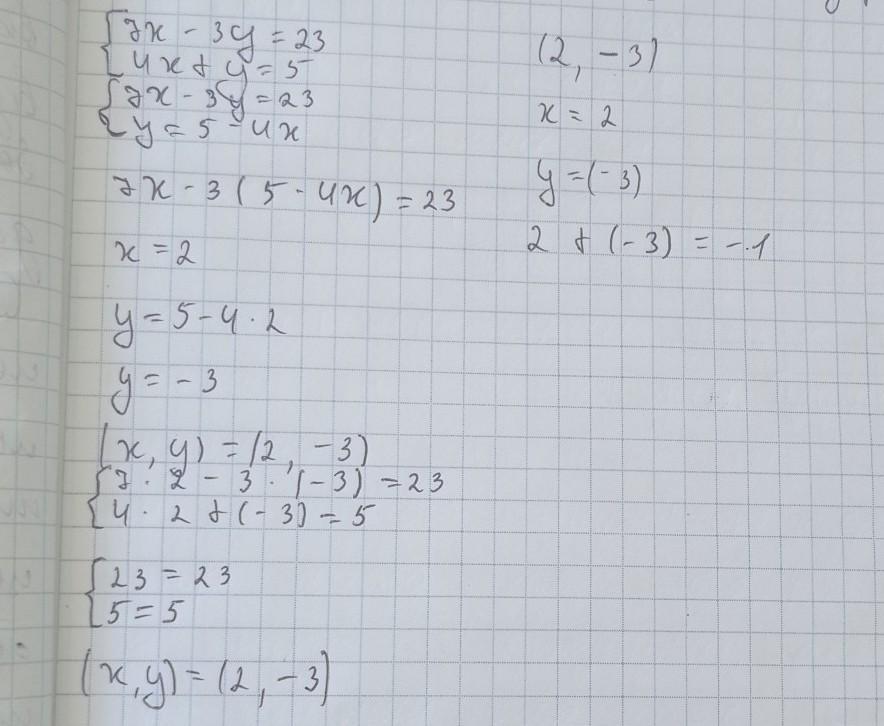 {7x - 3y = 23
{4x + y = 5
{7x - 3y = 23
{y = 5 - 4x
7x - 3(5 - 4x) = 23
x = 2
y = 5 - 4 · 2
y = -3
(x, y) = (2, -3)
{7 · 2 - 3 · (-3) = 23
{4 · 2 + (-3) = 5
{23 = 23
{5 = 5
(x, y) = (2, -3)
(2, -3)
x = 2
y = (-3)
2 + (-3) = -1